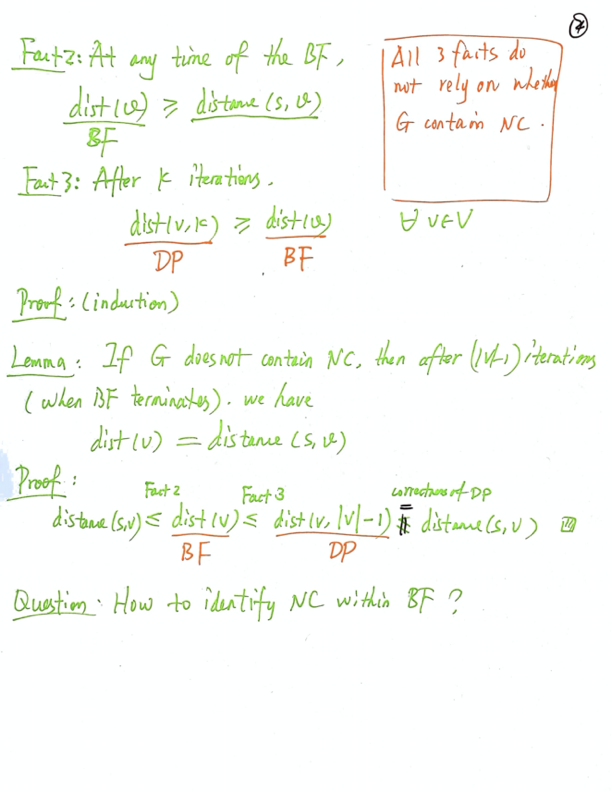 ⑦
Fact 2: At any time of the BF,
dist(v) ≥ distance(s, v)
BF
All 3 facts do
not rely on whether
G contain NC.
Fact 3: After k iterations,
dist(v, k) ≥ dist(v) ∀ v∈V
DP BF
Proof: (induction)
Lemma: If G does not contain NC, then after (|V|-1) iterations
(when BF terminates). we have
dist(v) = distance(s, v)
Proof:
Fact 2 Fact 3 correctness of DP
distance(s,v) ≤ dist(v) ≤ dist(v, |V|-1) = distance(s, v)
BF DP
Question: How to identify NC within BF ?